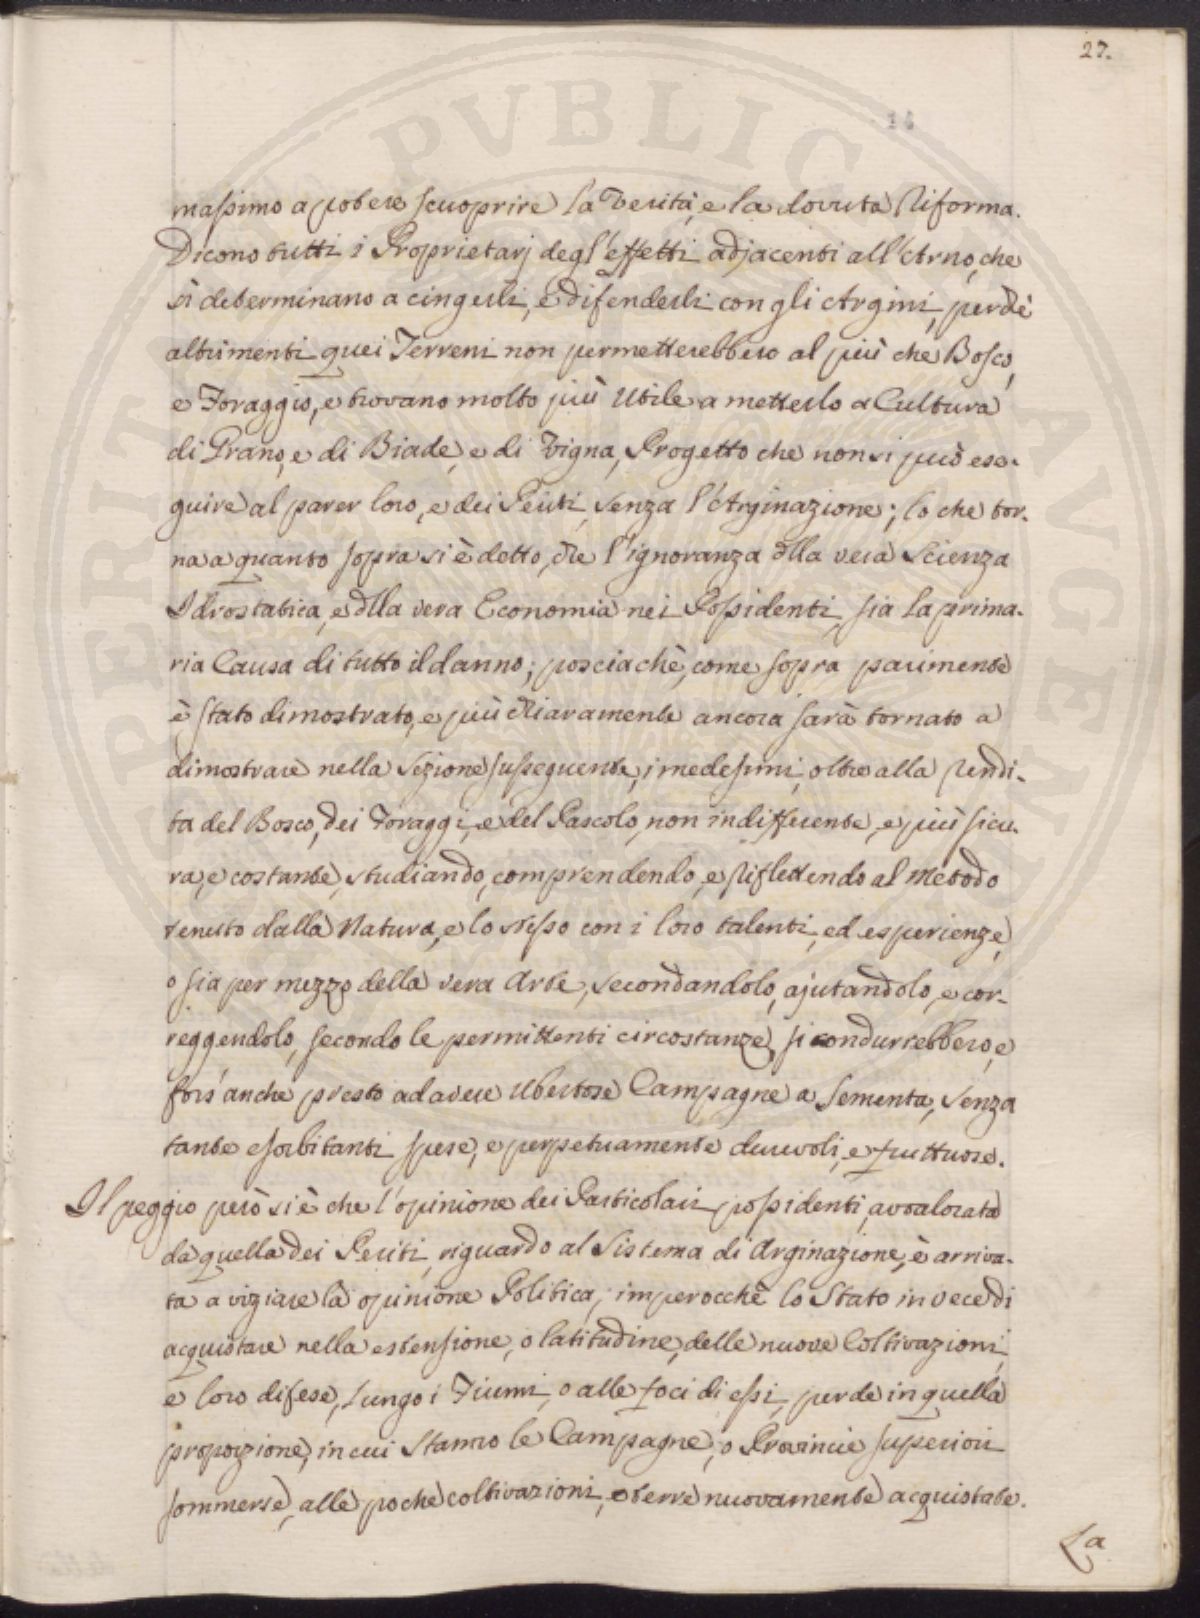 27.
14
massimo a potere scuoprire la Verità, e la dovuta Riforma.
Dicono tutti i Proprietarj degl'effetti adjacenti all'Arno, che
si determinano a cingerli, e difenderli con gli Argini, perchè
altrimenti quei Terreni non permetterebbero al più che Bosco,
e Foraggio, e trovano molto più Utile a metterlo a Cultura
di Grano, e di Biade, e di Vigna, Progetto che non si può ese-
guire al parer loro, e dei Periti, senza l'Arginazione; lo che tor-
na a quanto sopra si è detto, che l'ignoranza dlla vera Scienza
Idrostatica, e dlla vera Economia nei Possidenti, sia la prima-
ria Causa di tutto il danno; posciachè, come sopra parimente
è stato dimostrato, e più chiaramente ancora sarà tornato a
dimostrare nella Sezione susseguente, i medesimi, oltre alla Rendi-
ta del Bosco, dei Foraggi, e del Pascolo, non indifferente, e più sicu-
ra, e costante, studiando, comprendendo, e Riflettendo al Metodo
tenuto dalla Natura, e lo stesso con i loro talenti, ed esperienze,
o sia per mezzo della vera Arte, secondandolo, ajutandolo, e cor-
reggendolo, secondo le permittenti circostanze, si condurrebbero, e
fors'anche presto ad avere Ubertose Campagne a Sementa, senza
tante esorbitanti spese, e perpetuamente durevoli, e fruttuose.
Il peggio però si è che l'opinione dei Particolari possidenti, avvalorata
da quella dei Periti, riguardo al Sistema di Arginazione, è arriva-
ta a viziare la opinione Politica; imperocchè lo Stato in vece di
acquistare nella estensione, o latitudine, delle nuove Coltivazioni,
e loro difese, lungo i Fiumi, o alle foci di essi, perde in quella
proporzione, in cui stanno le Campagne, o Provincie superiori
sommerse, alle poche coltivazioni, e terre nuovamente acquistate.
La
PERITIA PVBLICA AVGENDA